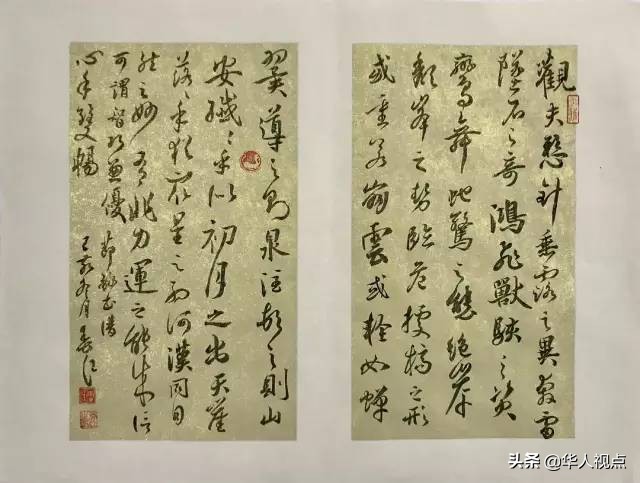 觀夫懸針垂露之異奔雷
墜石之奇鴻飛獸駭之資
鸞舞蛇驚之態絕岸
頹峰之勢臨危據槁之形
或重若崩雲或輕如蟬
翼導之則泉注頓之則山
安纖々乎似初月之出天崖
落々乎猶眾星之列河漢同自
然之妙有非力運之能成信
可謂智巧兼優
心手雙暢
節錄書譜
己亥冬月
头条@华人视点